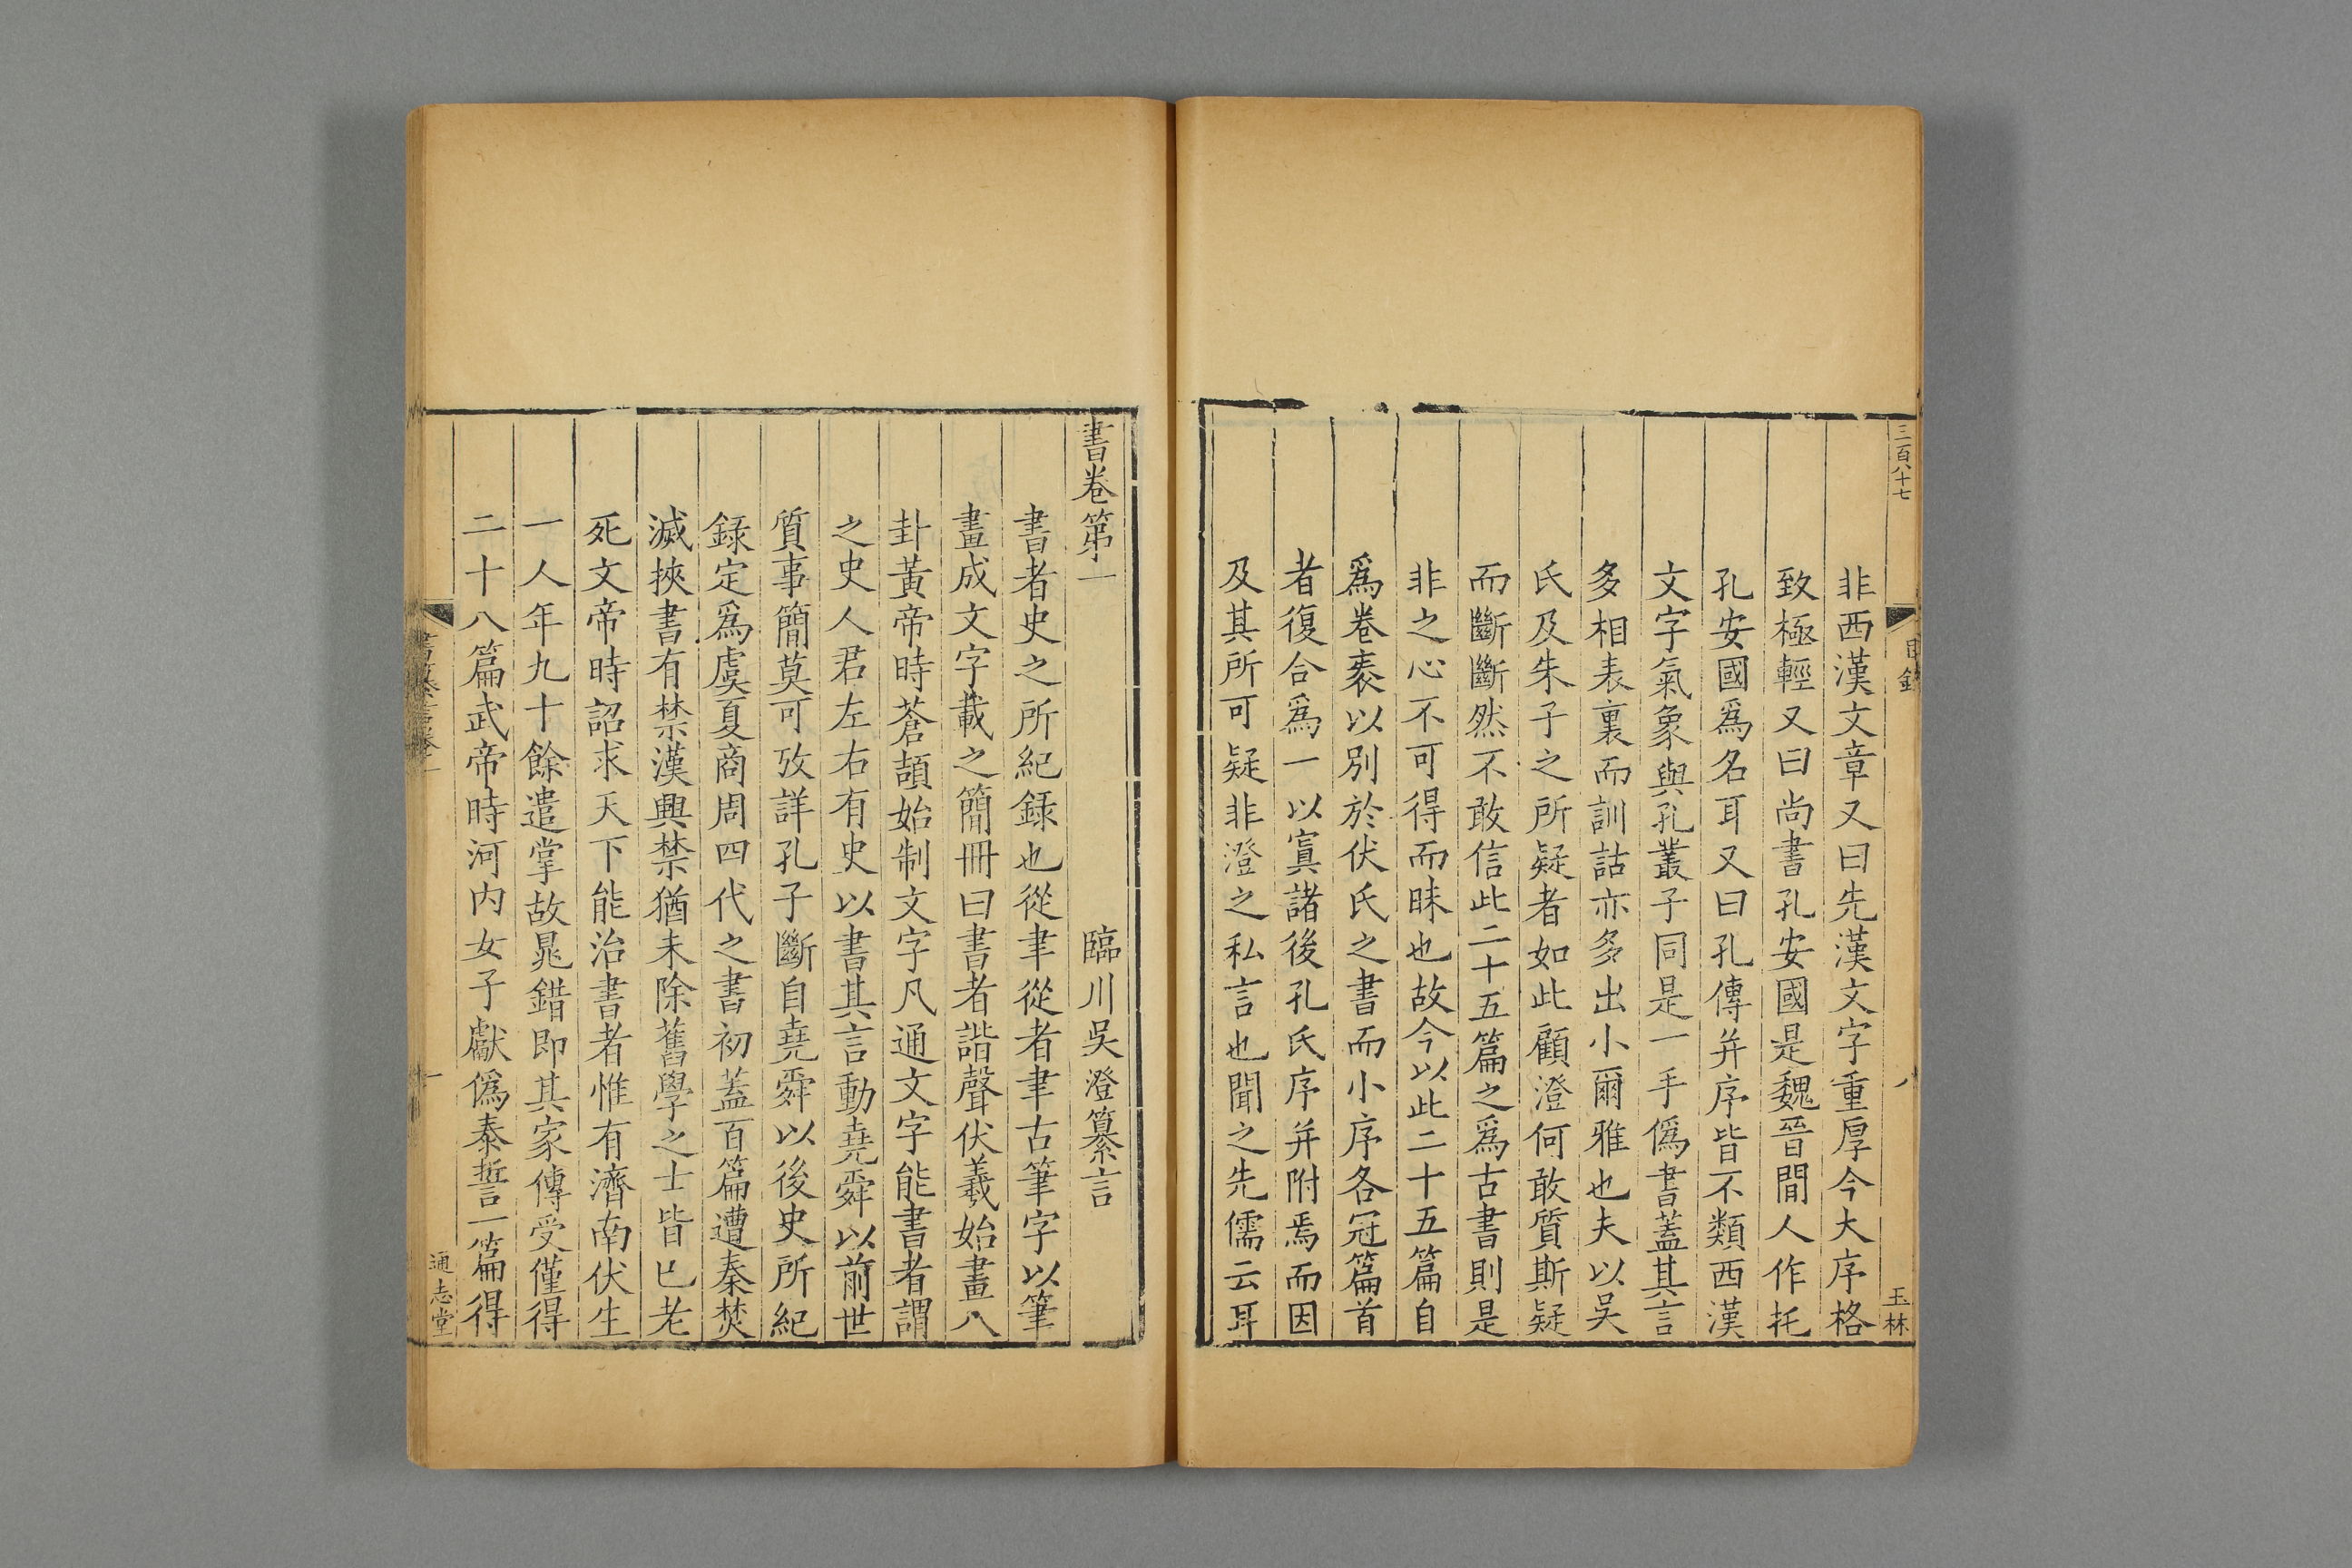 三百八十七
目錄
八
玉林
非西漢文章又曰先漢文字重厚今大序格
致極輕又曰尚書孔安國是魏晉間人作托
孔安國爲名耳又曰孔傳并序皆不類西漢
文字氣象與孔叢子同是一手僞書蓋其言
多相表裏而訓詁亦多出小爾雅也夫以吳
氏及朱子之所疑者如此顧澄何敢質斯疑
而斷斷然不敢信此二十五篇之爲古書則是
非之心不可得而昧也故今以此二十五篇自
爲卷袠以別於伏氏之書而小序各冠篇首
者復合爲一以寘諸後孔氏序并附焉而因
及其所可疑非澄之私言也聞之先儒云耳
書卷第一
臨川吳澄纂言
書者史之所紀錄也從聿從者聿古筆字以筆
畫成文字載之簡冊曰書者諧聲伏羲始畫八
卦黃帝時蒼頡始制文字凡通文字能書者謂
之史人君左右有史以書其言動堯舜以前世
質事簡莫可攷詳孔子斷自堯舜以後史所紀
錄定爲虞夏商周四代之書初蓋百篇遭秦焚
滅挾書有禁漢興禁猶未除舊學之士皆已老
死文帝時詔求天下能治書者惟有濟南伏生
一人年九十餘遣掌故晁錯即其家傳受僅得
二十八篇武帝時河内女子獻僞泰誓一篇得
書纂言卷一
一
通志堂